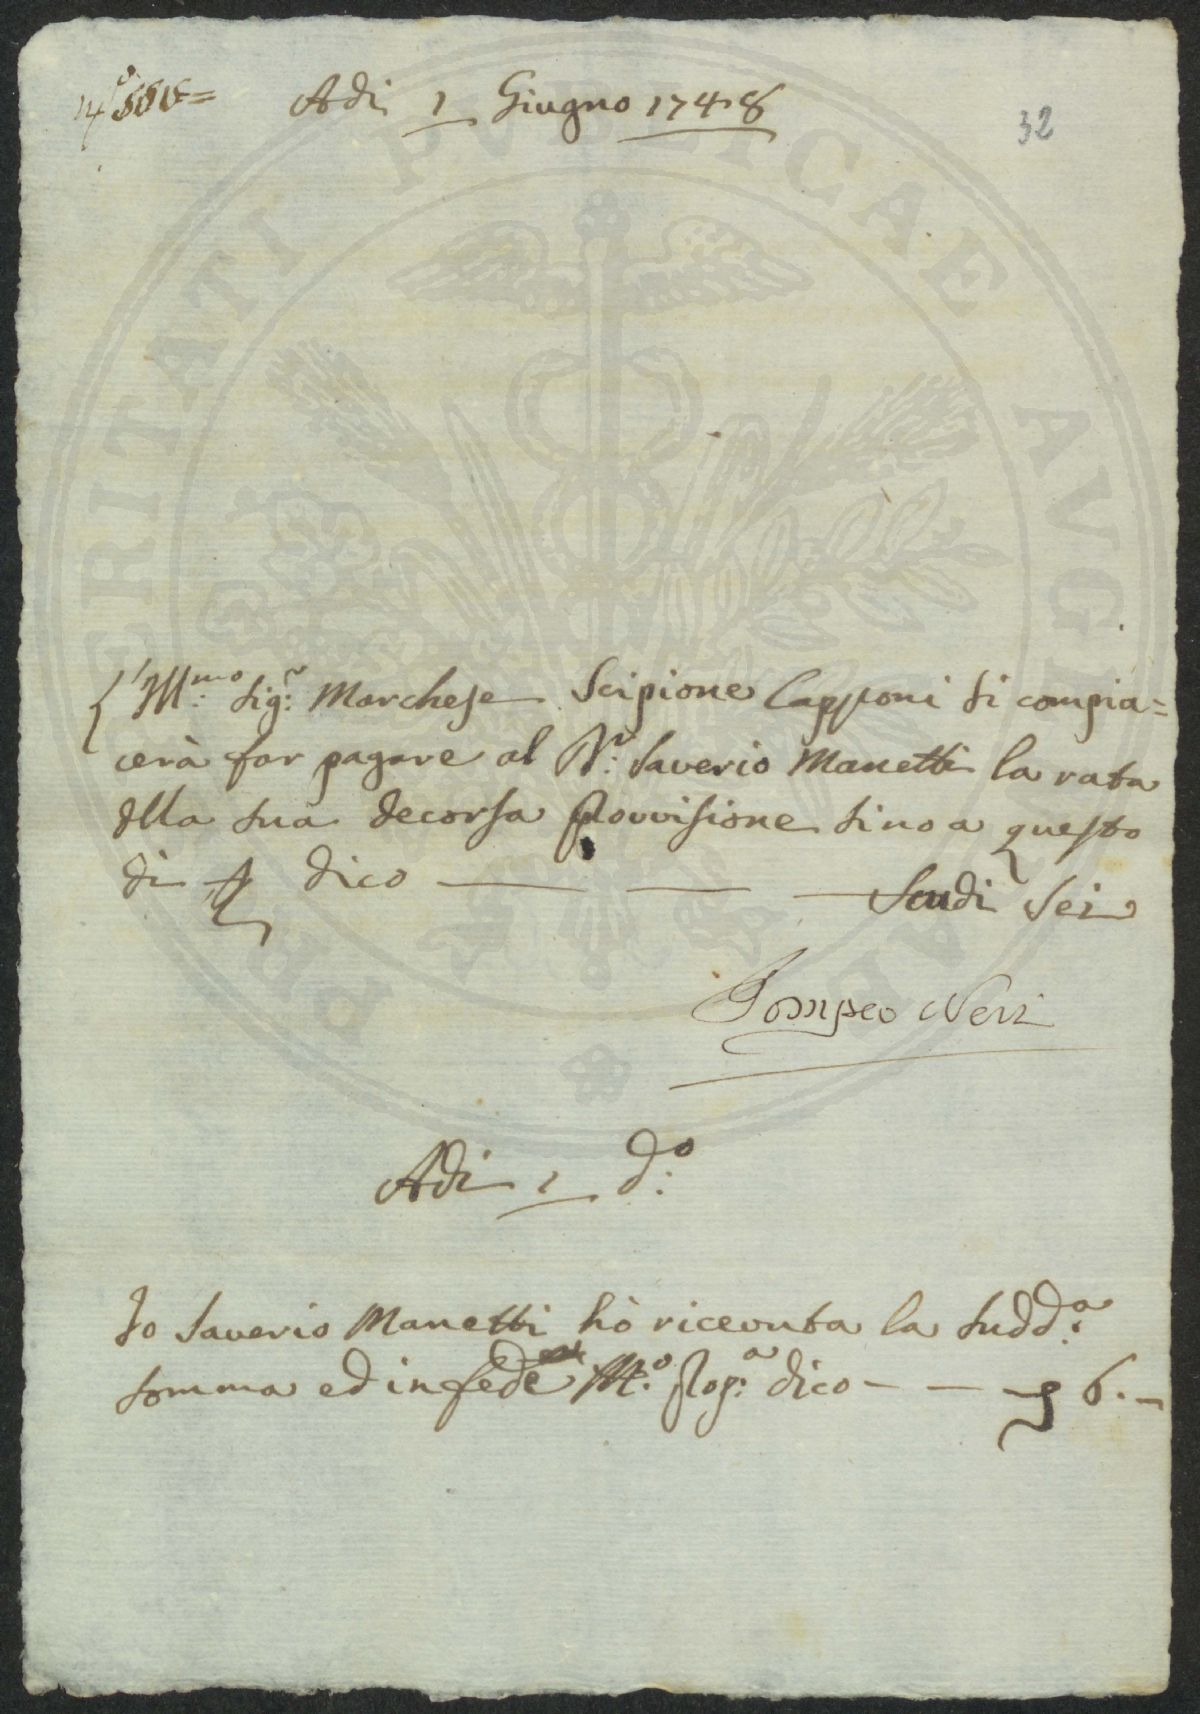 Adi 1 Giugno 1748
32
Ill.mo Sig.r Marchese Scipione Capponi si compia=
cerà far pagare al D.r Saverio Manetti la rata
della sua decorsa provvisione sino a questo
dì dico — — — Scudi Sei
Pompeo Neri
Adi 1 d.o
Io Saverio Manetti hò ricevuta la sudd.a
somma ed in fede M.o prop.a dico — — 6.—
PROSPERITATI PVBLICAE AVGENDAE